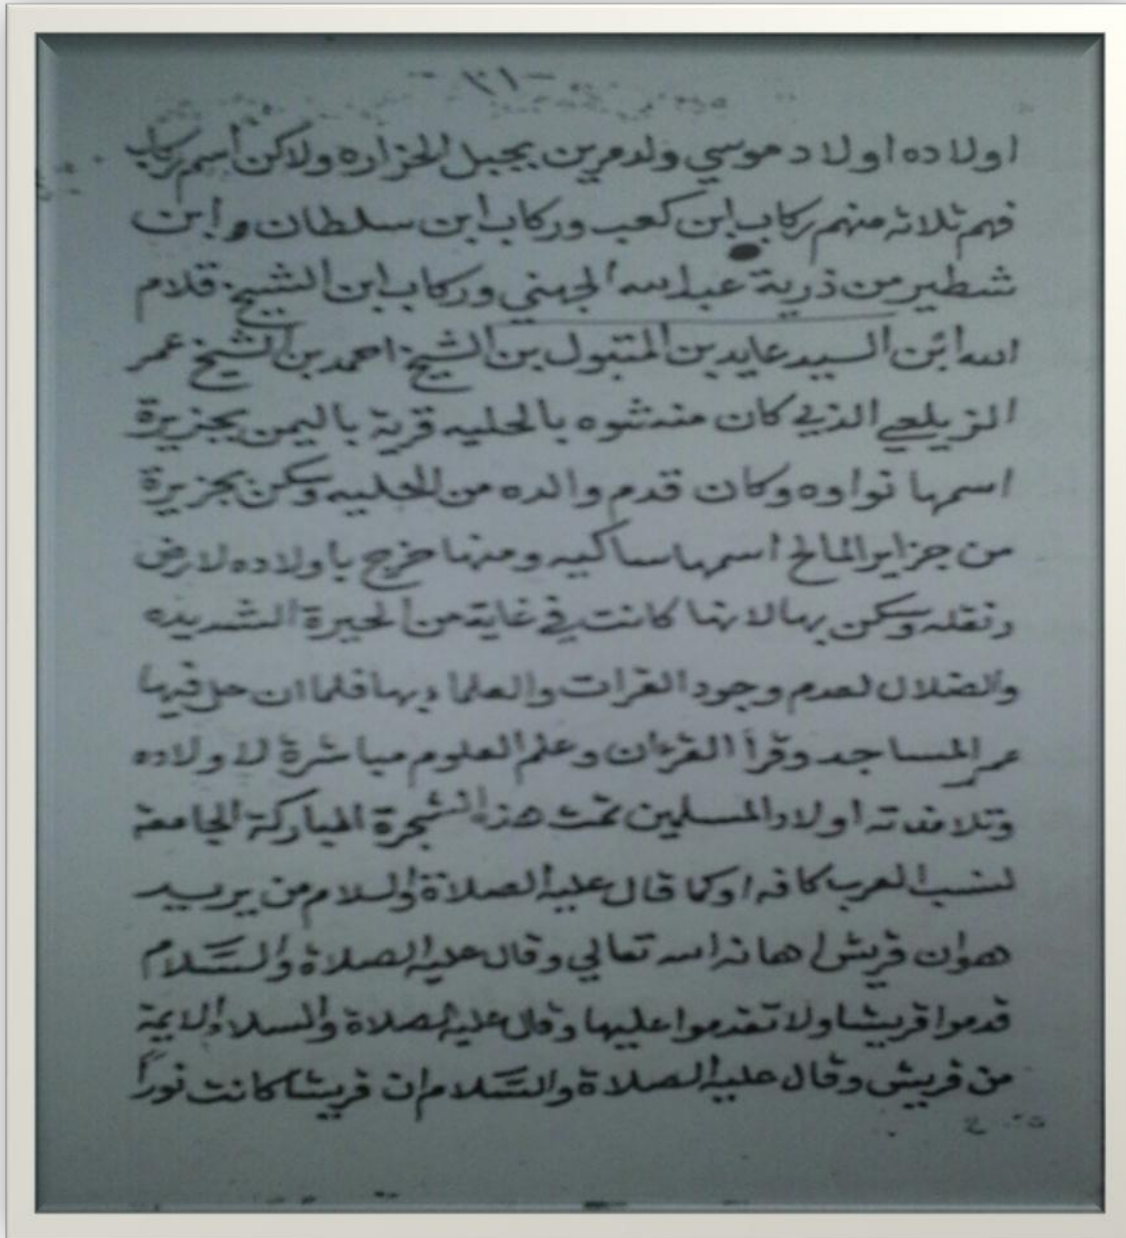 -٣١-
اولاده اولاد موسي ولد مرين بجبل الحزاره ولاكن اسم ركاب
فهم ثلاثه منهم ركاب ابن كعب وركاب ابن سلطان وابن
شطير من ذرية عبدالله الجهني وركاب ابن الشيخ قلام
الله ابن السيد عايد بن المتقبول بن الشيخ احمد بن الشيخ عمر
الزيلعي الذي كان منشوه بالحليه قرية باليمن بجزيرة
اسمها نواوه وكان قدم والده من الحليه وسكن بجزيرة
من جزاير المالح اسمها ساكيه ومنها خرج باولاده لارض
دنقله وسكن بها لانها كانت في غاية من الحيرة الشديده
والضلال لعدم وجود القرات والعلماء بها فلما ان حل فيها
عمر المساجد وقرأ القرءان وعلم العلوم مباشرة لاولاده
وتلامذته اولاد المسلمين تمت هذا الشجرة المباركة الجامعة
لنسب العرب كافه اوكما قال عليه الصلاة والسلام من يريد
هوان قريش اهانه الله تعالي وقال عليه الصلاة والسَّلام
قدموا قريشا ولا تقدموا عليها وقال عليه الصلاة والسلام الايمة
من قريش وقال عليه الصلاة والسَّلام ان قريشا كانت نوراً